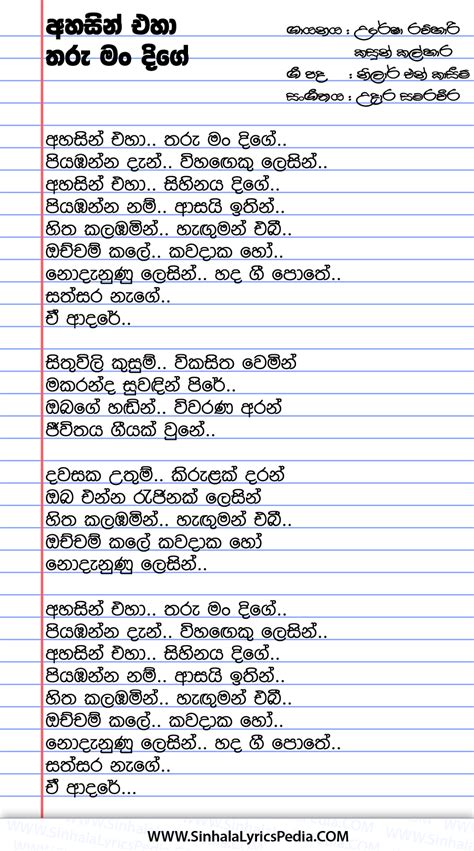 අහසින් එහා
තරු මං දිගේ
ගායනය : උදේශා රවිහාරි
කසුන් කල්හාර
ගී පද : නිලාර් එන් කාසිම්
සංගීතය : උදාර සමරවීර
අහසින් එහා.. තරු මං දිගේ..
පියඹන්න දැන්.. විහඟෙකු ලෙසින්..
අහසින් එහා.. සිහිනය දිගේ..
පියඹන්න නම්.. ආසයි ඉතින්..
හිත කලඹමින්.. හැඟුමන් එබී..
ඔච්චම් කලේ.. කවදාක හෝ..
නොදැනුණු ලෙසින්.. හද ගී පොතේ..
සත්සර නැගේ..
ඒ ආදරේ..
සිතුවිලි කුසුම්.. විකසිත වෙමින්
මකරන්ද සුවඳින් පිරේ..
ඔබගේ හඬින්.. විවරණ අරන්
ජීවිතය ගීයක් වුනේ..
දවසක උතුම්.. කිරුළක් දරන්
ඔබ එන්න රැජිනක් ලෙසින්
හිත කලඹමින්.. හැඟුමන් එබී..
ඔච්චම් කලේ කවදාක හෝ
නොදැනුණු ලෙසින්..
අහසින් එහා.. තරු මං දිගේ..
පියඹන්න දැන්.. විහඟෙකු ලෙසින්..
අහසින් එහා.. සිහිනය දිගේ..
පියඹන්න නම්.. ආසයි ඉතින්..
හිත කලඹමින්.. හැඟුමන් එබී..
ඔච්චම් කලේ.. කවදාක හෝ..
නොදැනුණු ලෙසින්.. හද ගී පොතේ..
සත්සර නැගේ..
ඒ ආදරේ...
WWW.SinhalaLyricsPedia.COM